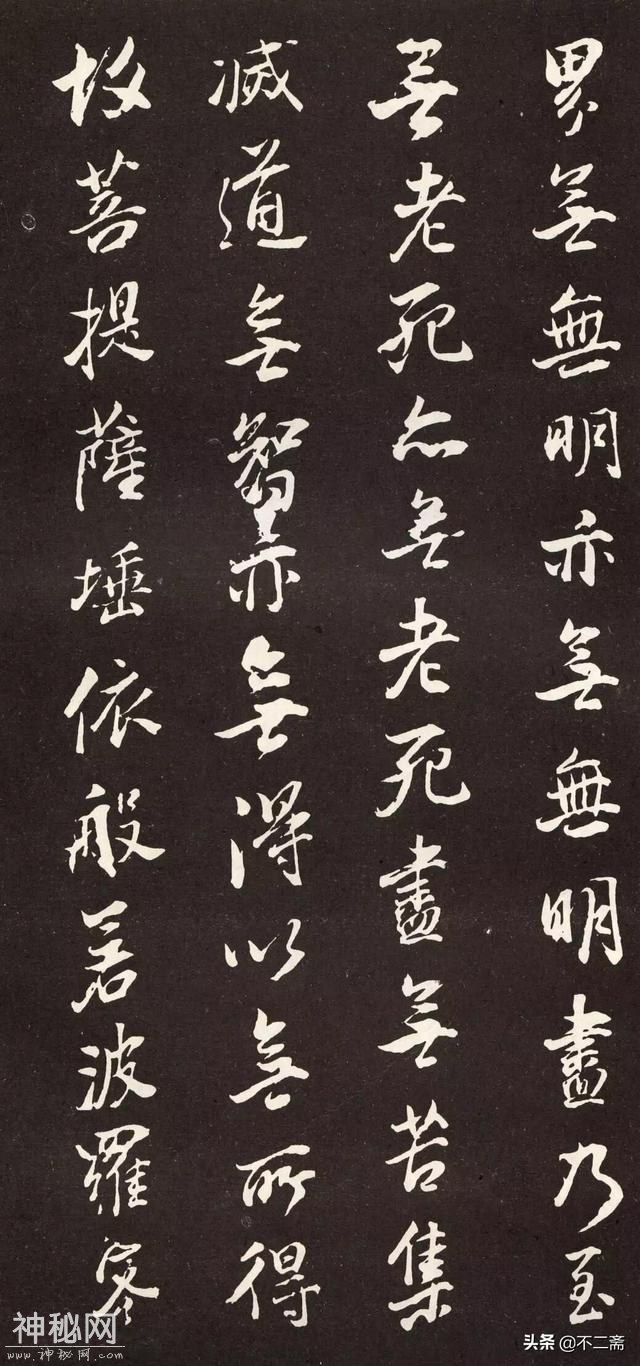 界無無明亦無無明盡乃至
無老死亦無老死盡無苦集
滅道無智亦無得以無所得
故菩提薩埵依般若波羅蜜
神秘网
www.神秘网.com
头条 @不二斋